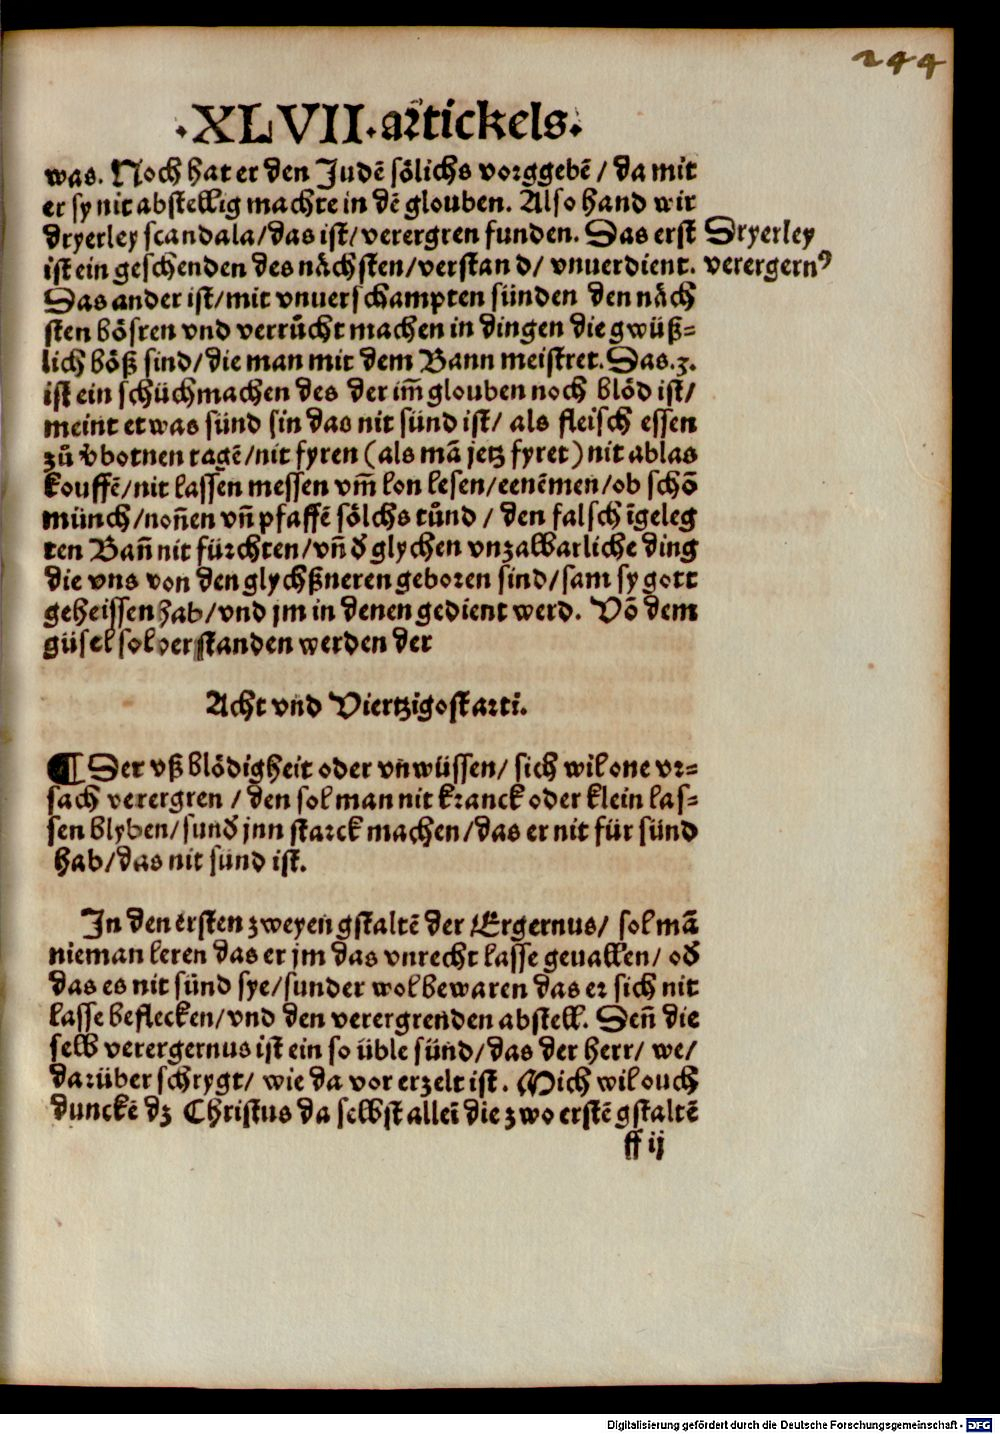 244
·XLVII·artickels.
was. Noch hat er den Judē sölichs vorggebē / da mit
er sy nit abstellig machte in dē glouben. Also hand wir
dryerley scandala/das ist/verergren funden. Das erst
Dryerley
ist ein geschenden des nächsten/verstand/ vnuerdient.
verergernꝰ
Das ander ist/mit vnuerschampten sünden den näch
sten bösren vnd verrůcht machen in dingen die gwüß=
lich böß sind/die man mit dem Bann meistret. Das.3.
ist ein schüchmachen des der im̄ glouben noch blöd ist/
meint etwas sünd sin das nit sünd ist/ als fleisch essen
zů vbotnen tagē/nit fyren (als mā jetz fyret) nit ablas
kouffē/nit lassen messen vm̄ lon lesen/eenēmen/ob schō
münch/non̄en vn̄ pfaffē sölchs tůnd / den falsch īgeleg
ten Ban̄ nit fürchten/vn̄ d̄ glychen vnzalbarliche ding
die vns von den glychßneren geboren sind/sam sy gott
geheissen hab/vnd jm in denen gedient werd. Võ dem
güsel sol verstanden werden der
Acht vnd Viertzigost arti.
¶ Der vß blödigheit oder vnwüssen/ sich wil one vr=
sach verergren / den sol man nit kranck oder klein las=
sen blyben/sund̄ jnn starck machen/das er nit für sünd
hab/das nit sünd ist.
In den ersten zweyen gstaltē der Ergernus/ sol mā
nieman leren das er jm das vnrecht lasse geuallen/ od̄
das es nit sünd sye/sunder wol bewaren das er sich nit
lasse beflecken/vnd den verergrenden abstell. Den̄ die
selb verergernus ist ein so üble sünd/das der herr/ we/
darüber schrygt/ wie da vor erzelt ist. Mich wil ouch
dunckē dz Christus da selbst alleī die zwo erstē gstaltē
ff ij
Digitalisierung gefördert durch die Deutsche Forschungsgemeinschaft - DFG